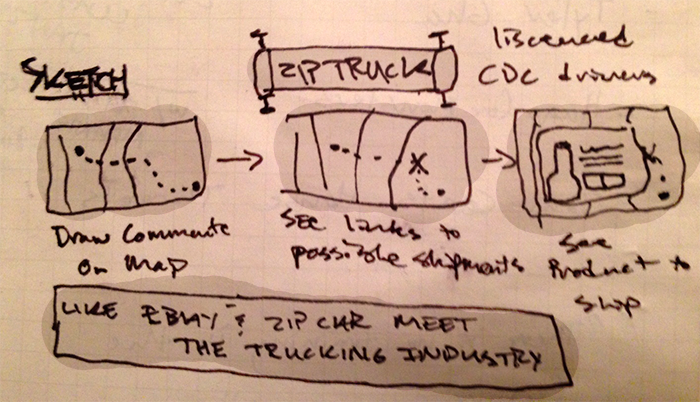 SKETCH
ZIP TRUCK
liscenced
CDC drivers
Draw Commute
on map
See links to
possible shipments
See
Product to
Ship
LIKE EBAY & ZIP CAR MEET
THE TRUCKING INDUSTRY